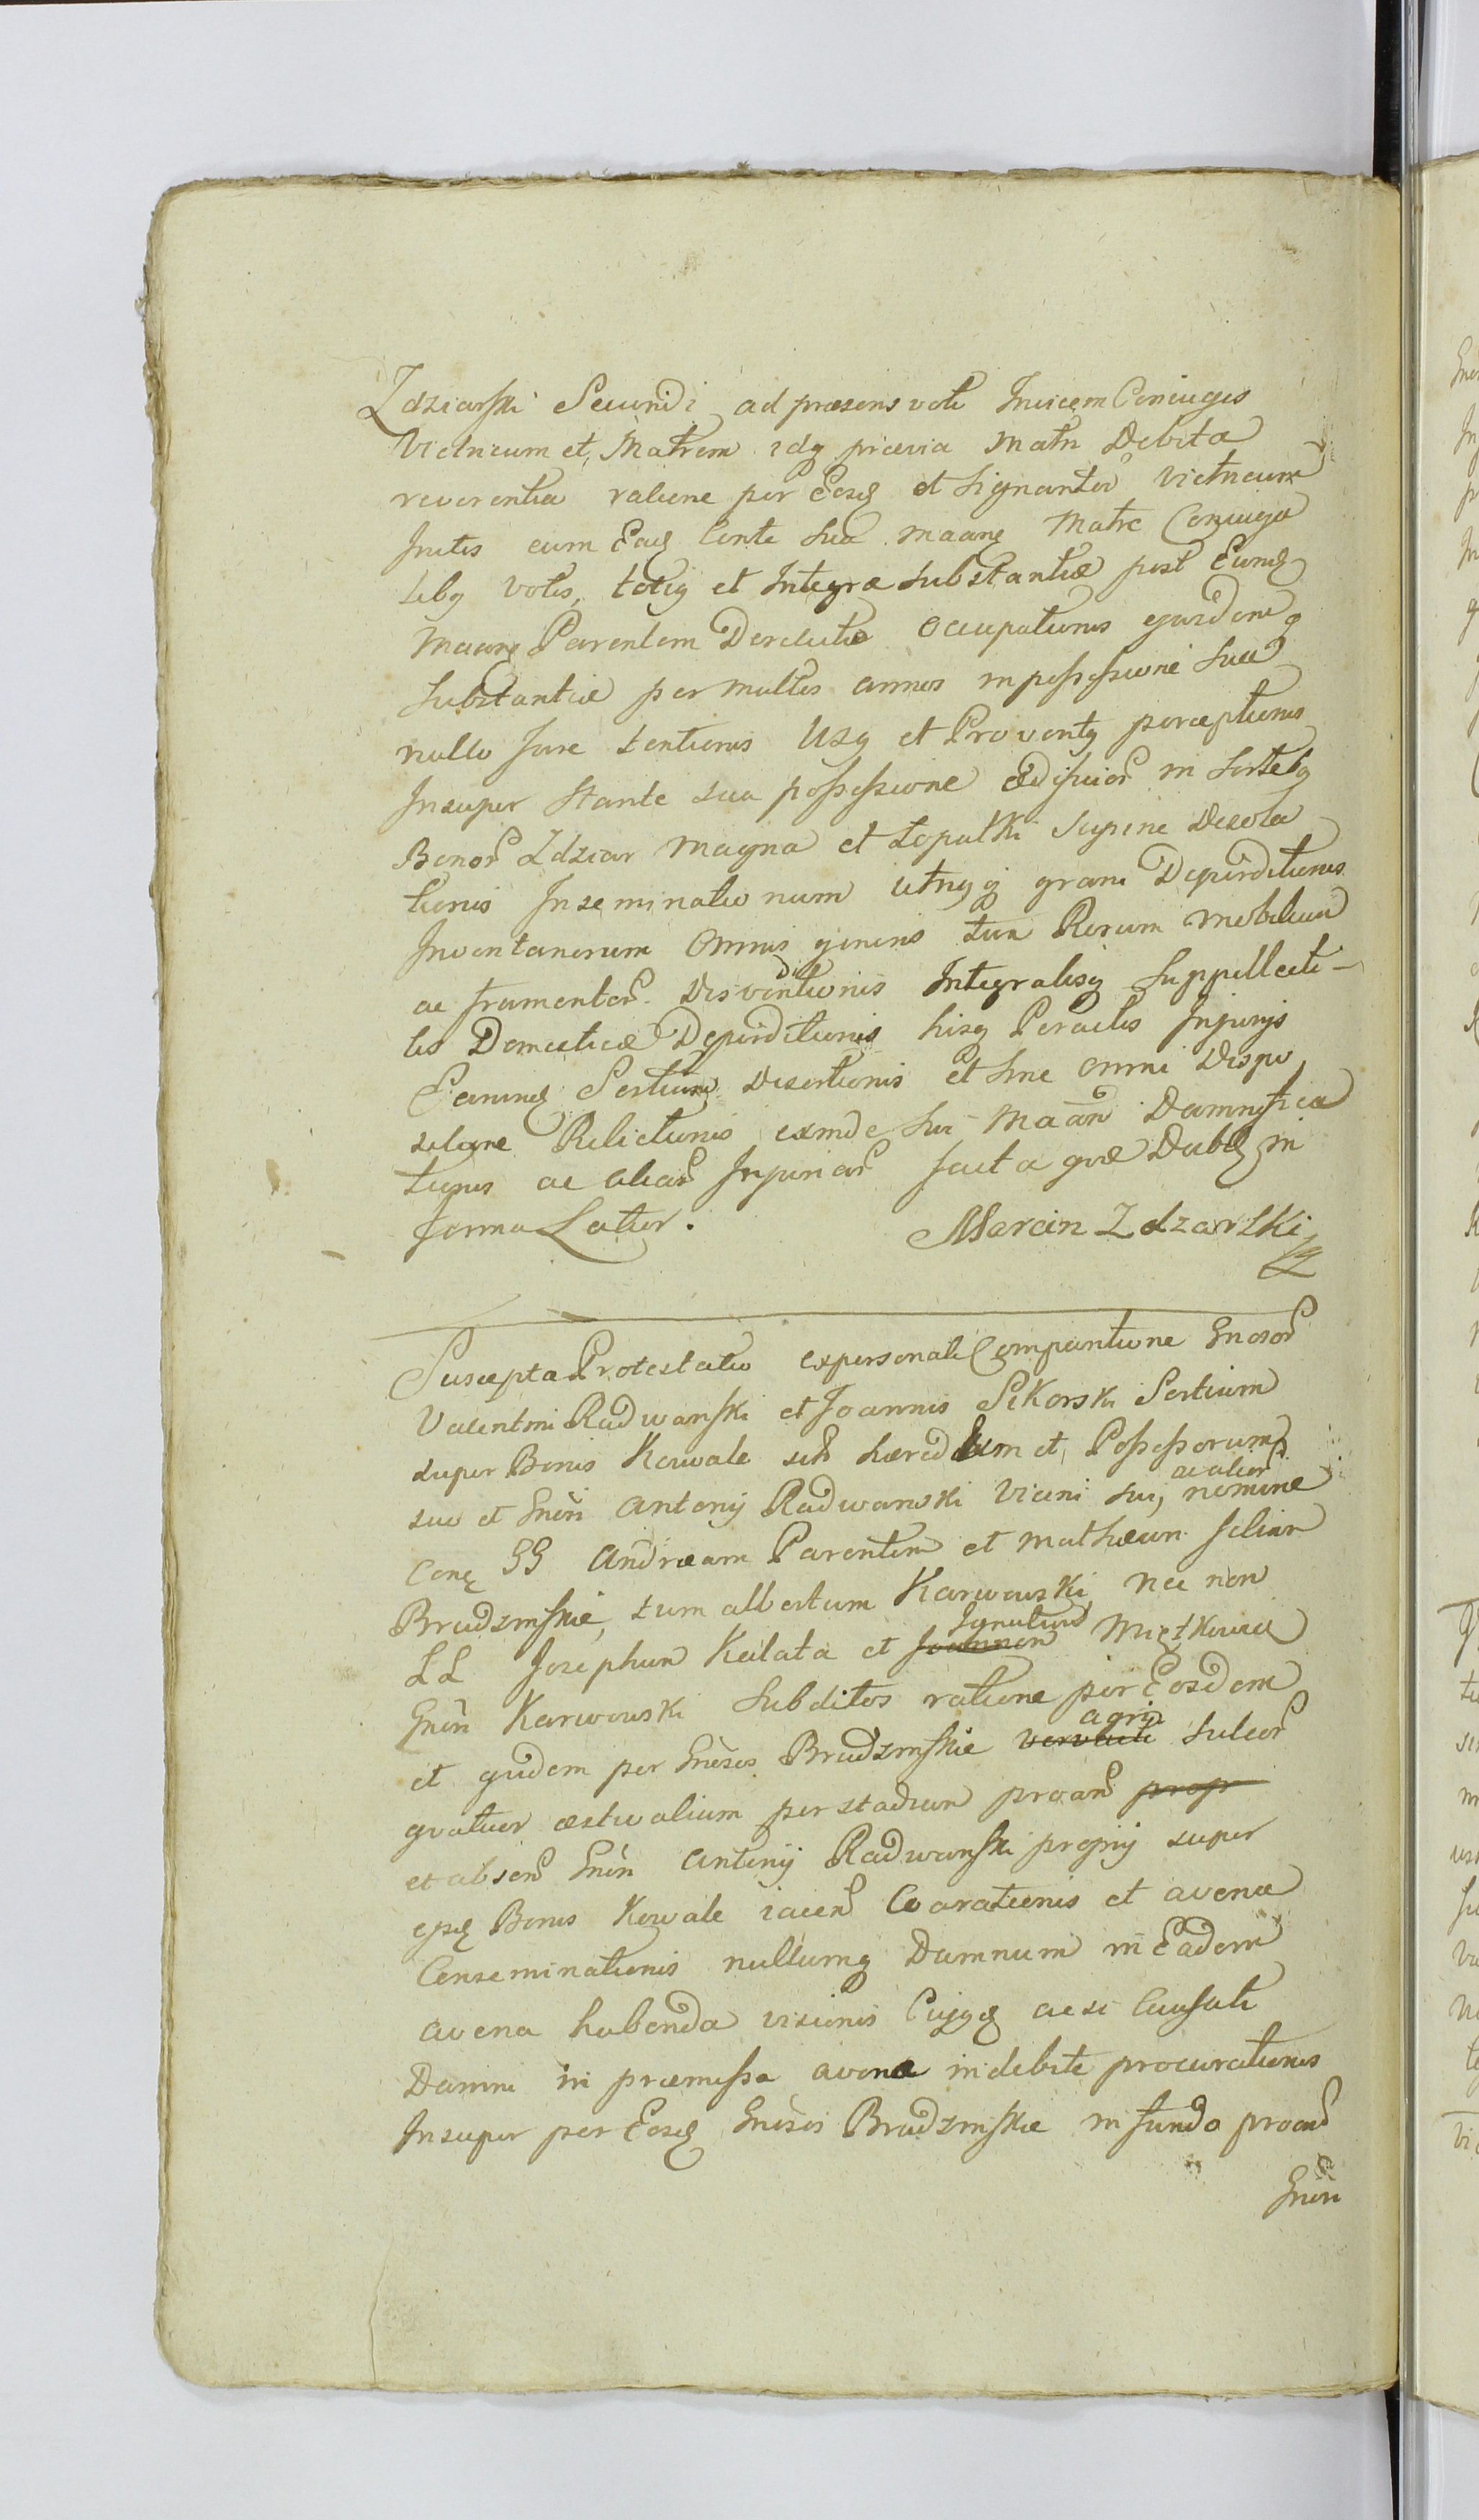 Zdziarski Secundi ad præsens voti Invicem Coniuges
Victricum et Matrem idq prævia Matri Debita
reverentia ratione per Eosq et signanter Victricum
Initis cum Eaq Conte sua maanq Matre Coniuga
libq votis, totiq et Integræ substantiæ post Eunq
Maanq Parentem Derelictæ occupationis ejusdemq
substantiæ per multos annos in possessione sua
nullo Jure tentionis Usq et Proventq perceptionis
Insuper stante sua possessione ædificior in sortibq
Bonor Zdziar Magna et Łopatki supine Desola
tionis Inseminationum utriqq grani Deperditionis
Inventariorum Omnis generis tum Rerum mobilium
ac frumentor Disventionis Integralisq suppellecti-
lis Domesticæ Deperditionis hisq Peractis Injurijs
Earunq Sortium Desertionis et sine omni Dispo
sitione Relictionis exinde sui Maan Damnifica
tionis ac aliar Injuriar facta quæ Dabq in
forma Latior.
Marcin Zdzarski
Suscepta Protestatio ex personali Comparitione Gnosor
Valentini Radwanski et Joannis Sikorski Sortium
super Bonis Kowale sit hæredum et Possessorum
ac alior
suo et Gnён Antonij Radwanski Vicini sui, nomine
Conq GG Andræam Parentem et Mathæum filium
Brudzinskie, tum Albertum Karwowski nec non
Ignatium
LL Josephum Kulata et Joannem Miętkowicz
Gnён Karwowski subditos ratione per Eosdem
agri
et quidem per Gnesos Brudzinskie vervacti sulcor
quatuor æstivalium per stadium proan propr
et absen Gnён Antonij Radwanski proprij super
ejsq Bonis Kowale jacen Coarationis et avena
Conseminationis nullumq Damnum in Eadem
avena habenda visionis Cujqq acsi Causati
Damni in præmissa avena indebite procurationis
Insuper per Eosq Gnesos Brudzinskie in fundo proan
Gnён